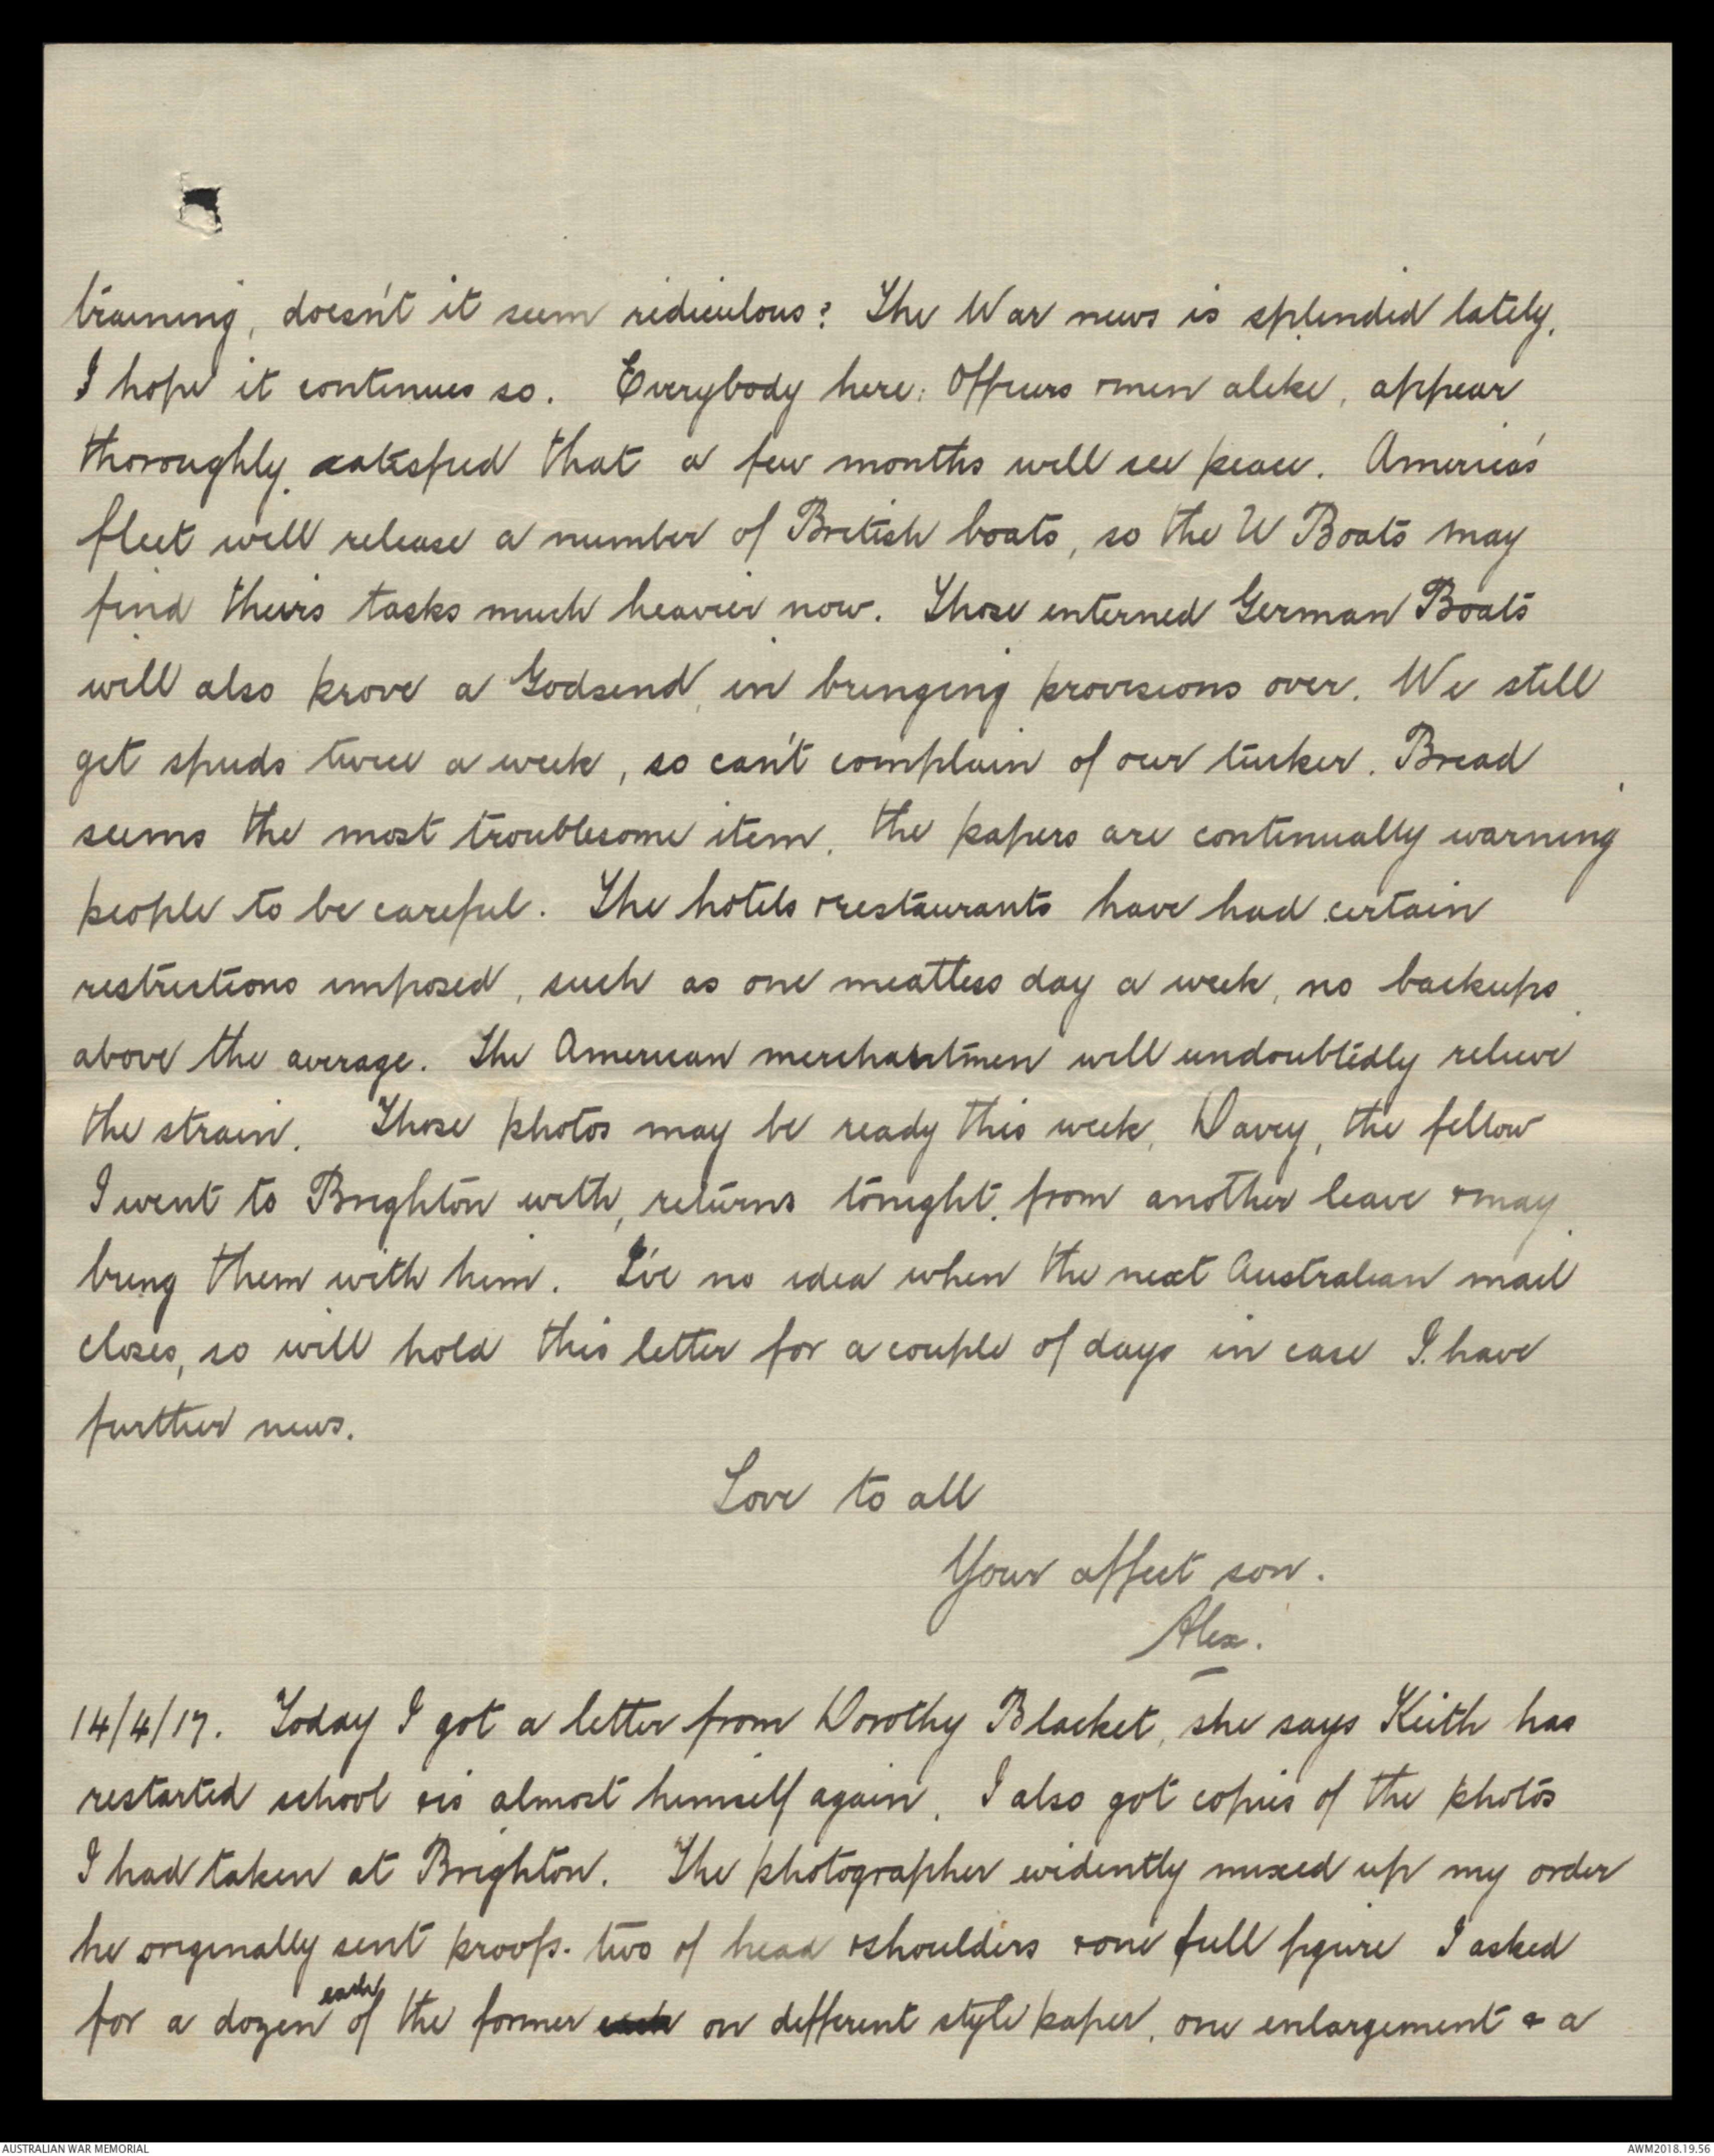 training, doesn't it seem ridiculous? The War news is splendid lately,
I hope it continues so. Everybody here, Officers & men alike, appear
thoroughly satisfied that a few months will see peace. America's
fleet will release a number of British boats, so the U Boats may
find theirs tasks much heavier now. Those interned German Boats
will also prove a Godsend, in bringing provisions over. We still
get spuds twice a week, so can't complain of our tucker. Bread
seems the most troublesome item, the papers are continually warning
people to be careful. The hotels & restaurants have had certain
restrictions imposed, such as one meatless day a week, no backups
above the average. The American merchantmen will undoubtedly relieve
the strain. Those photos may be ready this week, Davey, the fellow
I went to Brighton with, returns tonight, from another leave & may
bring them with him. I've no idea when the next Australian mail
closes, so will hold this letter for a couple of days in case I have
further news.
Love to all
Your affect son.
Alex.
14/4/17. Today I got a letter from Dorothy Blacket, she says Keith has
restarted school & is almost himself again. I also got copies of the photos
I had taken at Brighton. The photographer evidently mixed up my order
he originally sent proofs. two of head & shoulders & one full figure I asked
for a dozen each of the former each on different style paper, one enlargement & a
AUSTRALIAN WAR MEMORIAL
AWM2018.19.56